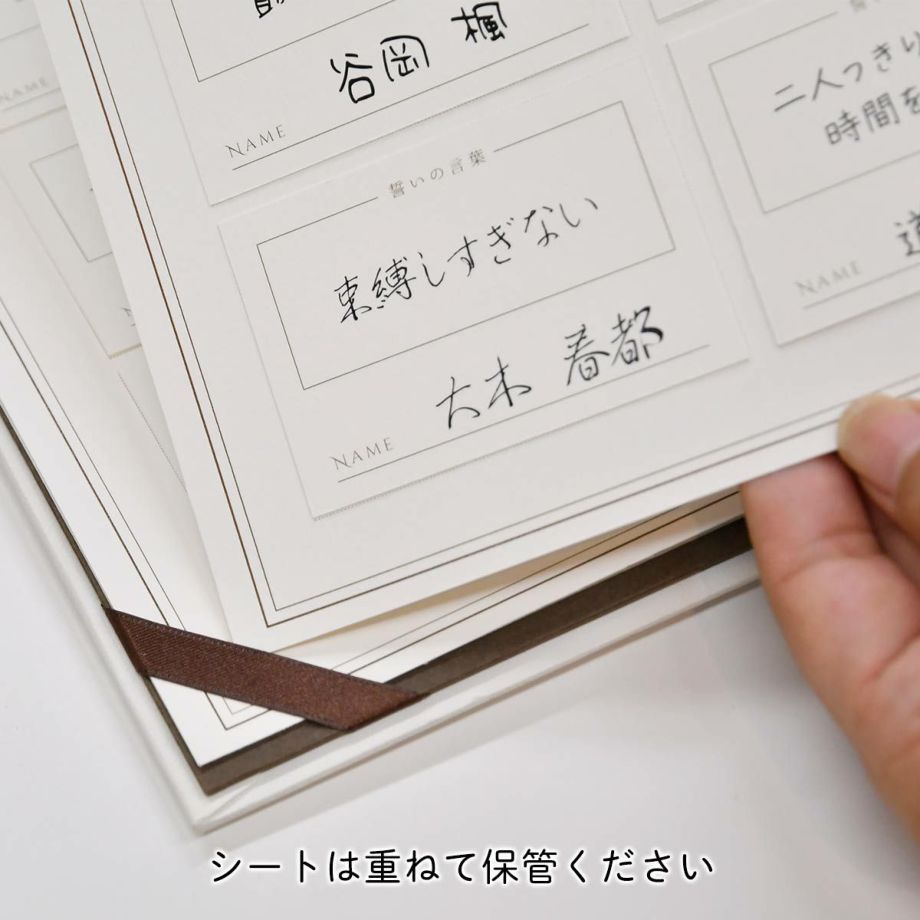 谷岡 楓
NAME
誓いの言葉
束縛しすぎない
大木 春都
NAME
二人っきり
時間を
NAME
NAME
シートは重ねて保管ください